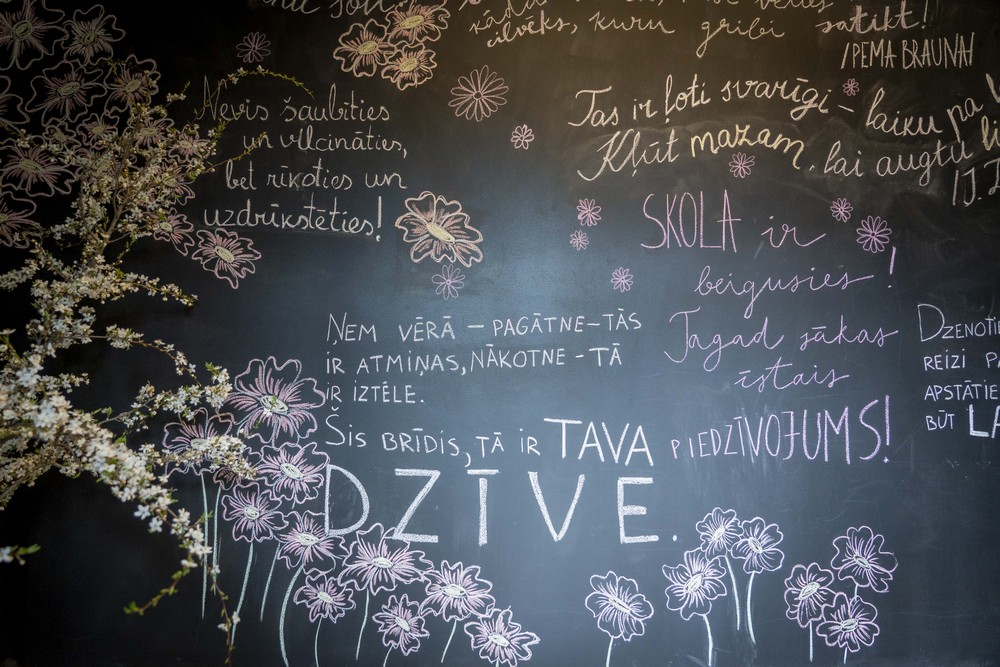 satikt!
cilvēks, kuru gribi
/PEMA BRAUNA/
Nevis šaubīties
un vilcināties,
bet rīkoties un
uzdrīkstēties!
Tas ir ļoti svarīgi - laiku pa
Kļūt mazam, lai augtu li
SKOLA ir
beigusies!
Tagad sākas
īstais
PIEDZĪVOJUMS!
ŅEM VĒRĀ - PAGĀTNE-TĀS
IR ATMIŅAS, NĀKOTNE - TĀ
IR IZTĒLE.
ŠIS BRĪDIS, TĀ IR TAVA
DZĪVE.
DZENOTIE
REIZI PA
APSTĀTIE
BŪT LA